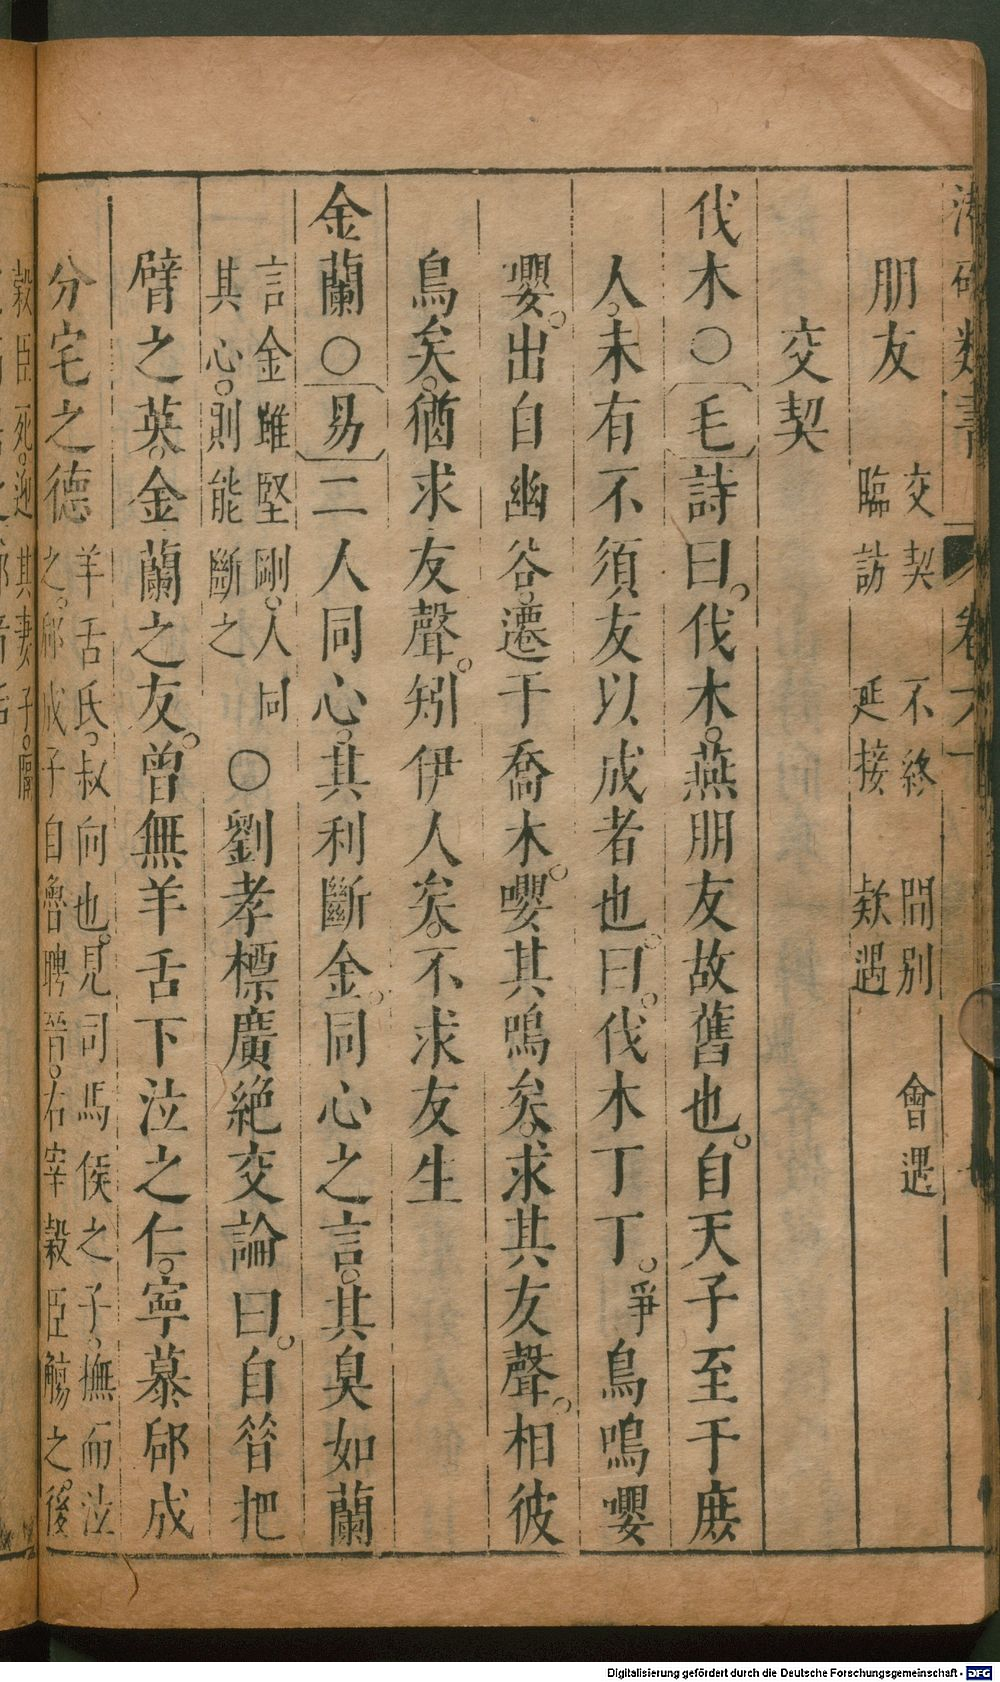 朋友 交契 不終 間別 會遇
臨訪 延接 欵遇
交契
伐木○毛詩曰。伐木。燕朋友故舊也。自天子至于庶
人。未有不須友以成者也。曰。伐木丁丁。爭鳥鳴嚶
嚶。出自幽谷。遷于喬木。嚶其鳴矣。求其友聲。相彼
鳥矣。猶求友聲。矧伊人矣。不求友生
金蘭○易二人同心。其利斷金。同心之言。其臭如蘭
言金雖堅剛。人同
其心。則能斷之 ○劉孝標廣絶交論曰。自昝把
臂之英。金蘭之友。曾無羊舌下泣之仁。寧慕郈成
分宅之德 羊舌氏。叔向也。見司馬侯之子。撫而泣
之。郈成子自魯聘晉。右宰穀臣觴之。後
穀臣死。迎其妻子。隔
Digitalisierung gefördert durch die Deutsche Forschungsgemeinschaft - DFG